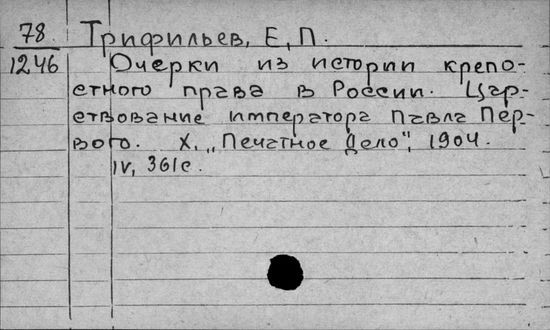 78 Трифильев, Е, П.
1246 Очерки из истории крепо-
стного права в России. Цар-
ствование императора Павла Пер-
вого. Х, „Печатное Дело", 1904.
IV, 361с.